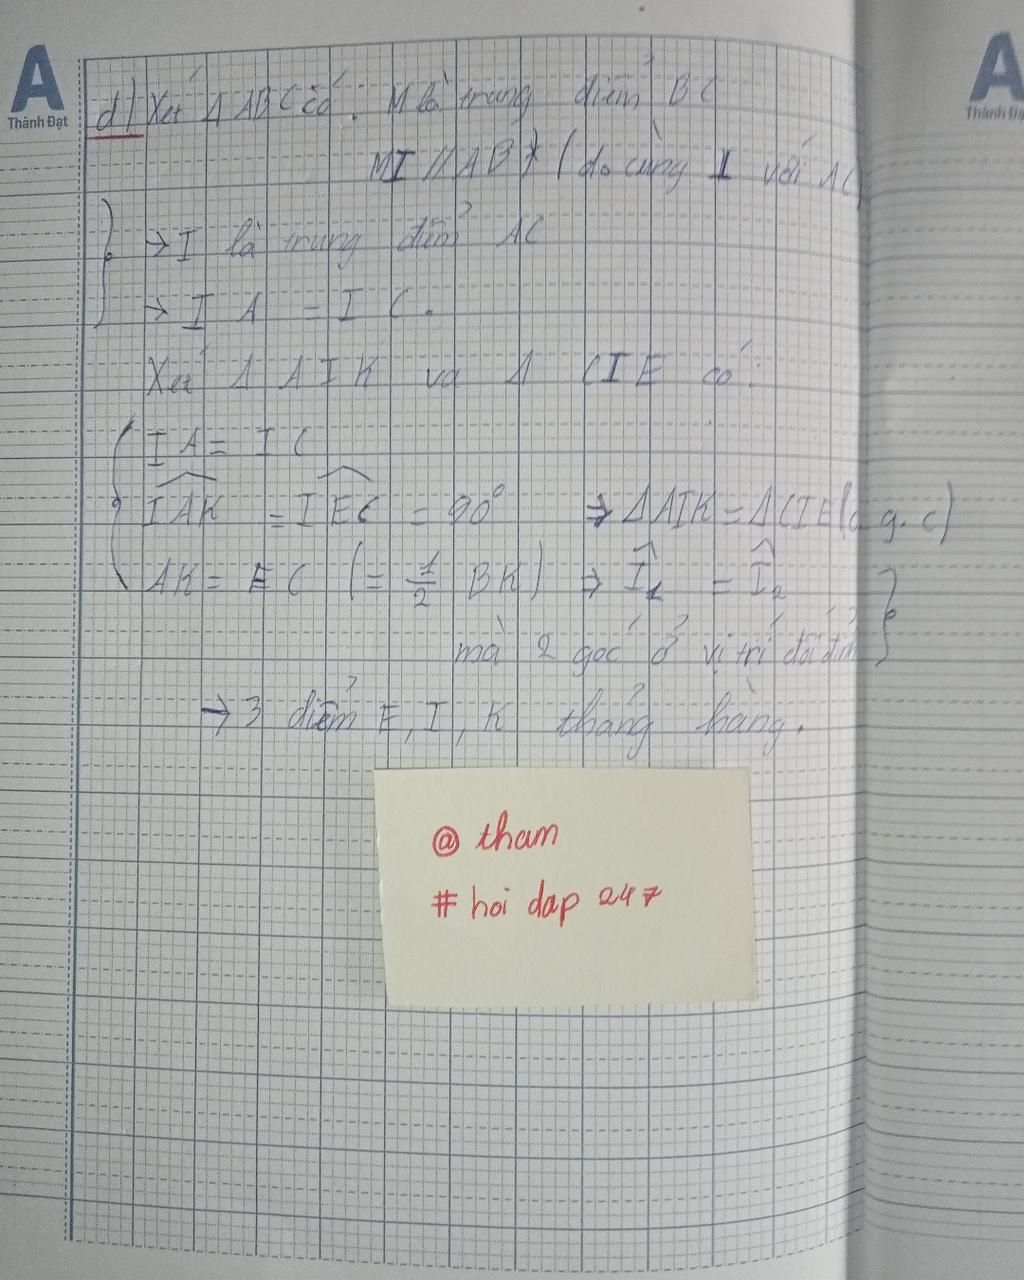 A
Thành Đạt
A
Thành Đạ
d) Xét Δ ABC có: M là trung điểm BC
MI // AB (do cùng ⊥ với AC)
→ I là trung điểm AC
→ I A = I C.
Xét Δ A I K và Δ C I E có:
I A = I C
IAK = IEC = 90° ⇒ Δ AIK = Δ CIE (c. g. c)
AK = EC (= 1/2 BK) ⇒ I₁ = I₂
mà 2 góc ở vị trí đối đỉnh
→ 3 điểm E, I, K thẳng hàng.
@ tham
# hoi dap 247